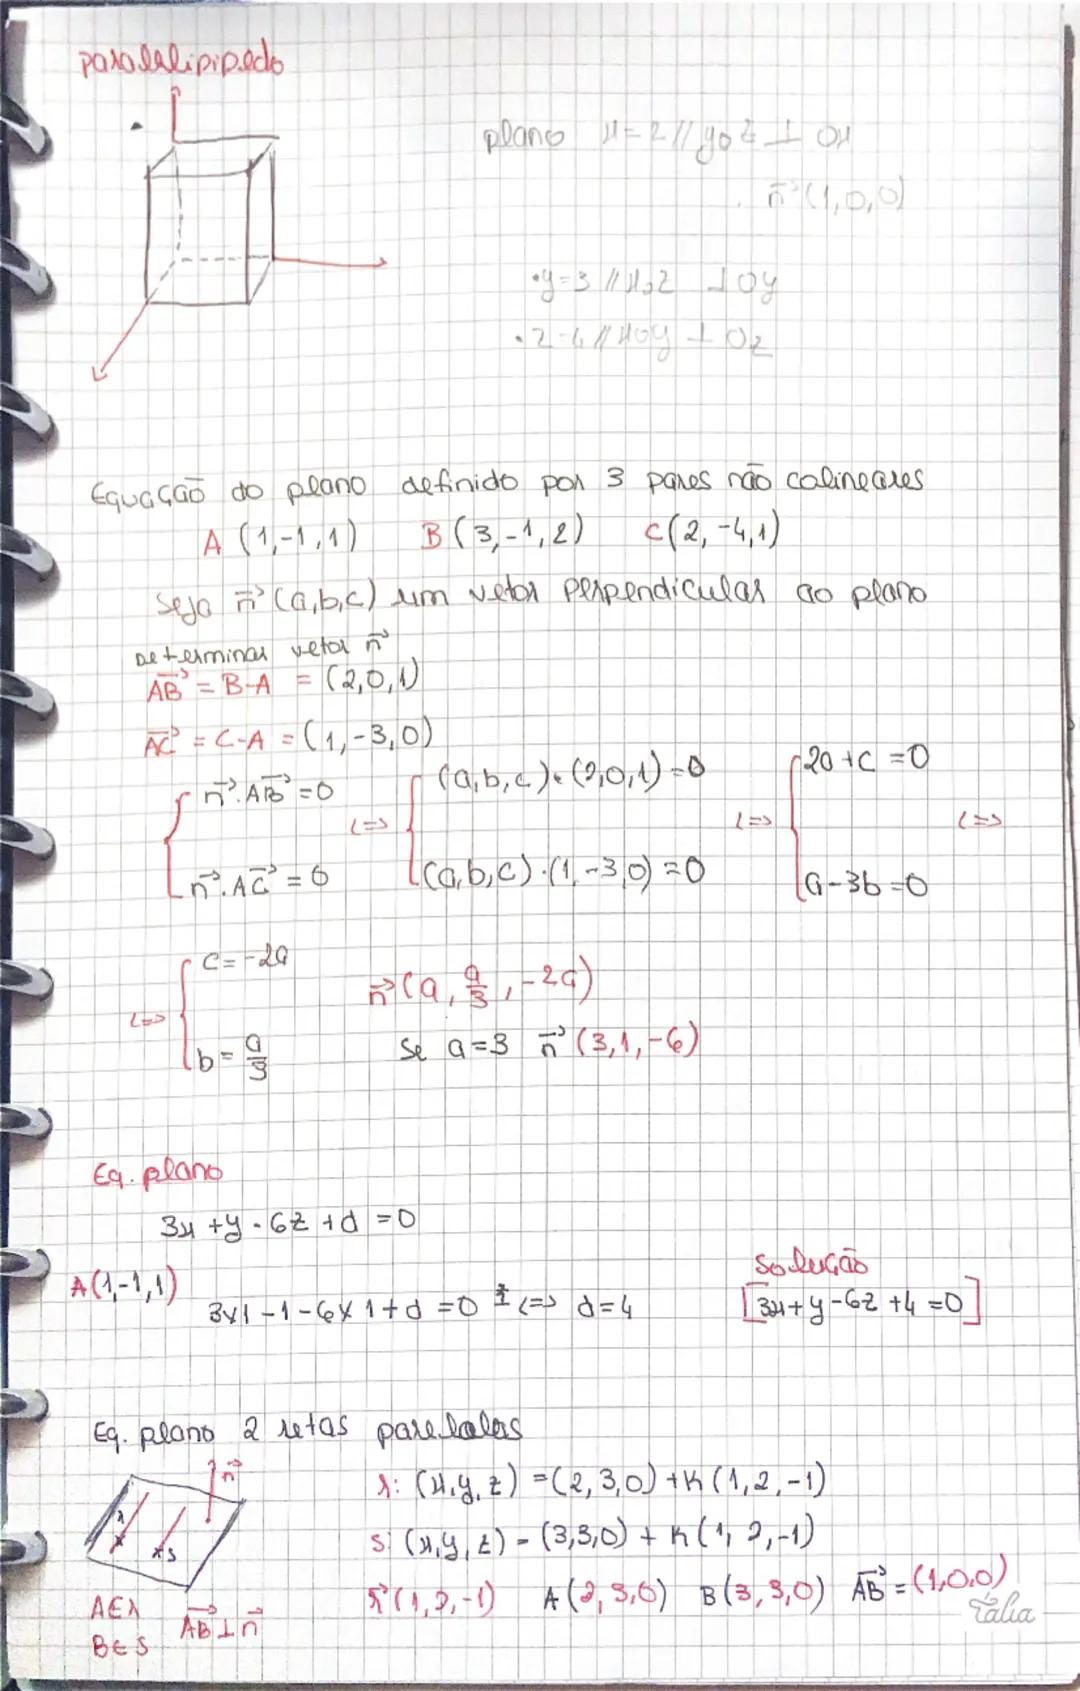 paralelipipedo
plano x=2 // yoz ⊥ ox
n⃗ (1,0,0)
• y=3 // xoz ⊥ oy
• z=4 // xoy ⊥ oz
Equação do plano definido por 3 pares não colineares
A (1,-1,1) B (3,-1,2) C (2,-4,1)
Seja n⃗ (a,b,c) um vetor perpendicular ao plano
Determinar vetor n⃗
AB⃗ = B-A = (2,0,1)
AC⃗ = C-A = (1,-3,0)
{ n⃗.AB⃗ = 0 <=> { (a,b,c)•(2,0,1)=0 <=> { 2a+c=0 <=>
n⃗.AC⃗ = 0 (a,b,c)·(1,-3,0)=0 a-3b=0
<=> { c=-2a n⃗ (a, a/3, -2a)
b = a/3 se a=3 n⃗ (3,1,-6)
Eq. plano
3x+y-6z+d=0
Solução
A(1,-1,1) 3x1-1-6x1+d=0 <=> d=4 [3x+y-6z+4=0]
Eq. plano 2 retas parelalas
n⃗
r: (x,y,z) = (2,3,0)+K(1,2,-1)
r
s: (x,y,z) = (3,3,0)+K(1,2,-1)
s
A∈r AB⃗ ⊥ n⃗ r⃗ (1,2,-1) A(2,3,0) B(3,3,0) AB⃗ = (1,0,0)
B∈s
Tália